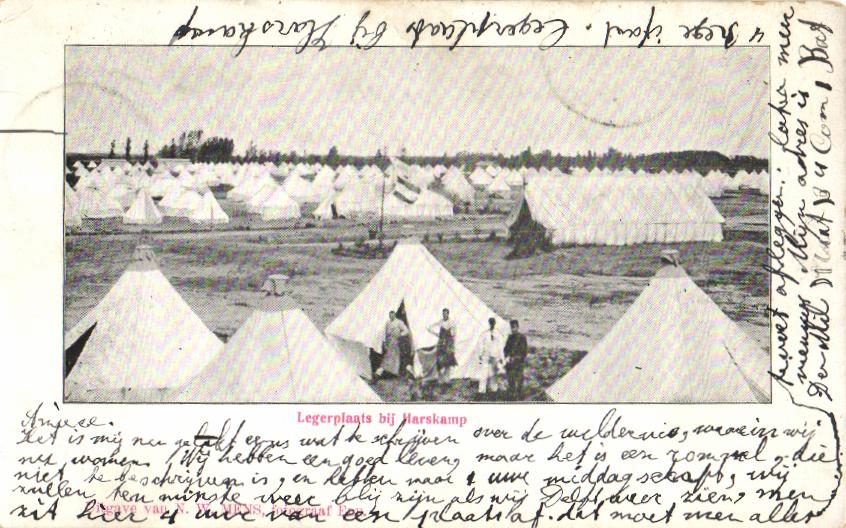 Legerplaats bij Harskamp
Amice.
Het is mij nu gelukt eens wat te schrijven over de wildernis, waarin wij
nu wonen. Wij hebben een goed leven, maar het is een rommel, die
niet te beschrijven is, en hebben maar 1 uur middagschaft, wij
zullen ten minste weer blij zijn als wij Delft weer zien, men
zit hier 4 uur van een plaats af. dat moet men alles
Uitgave van N. W. MENS, fotograaf Ede
moet afleggen.
Mijn adres is
4 Com 1 Bat
Legerplaats bij Harskamp